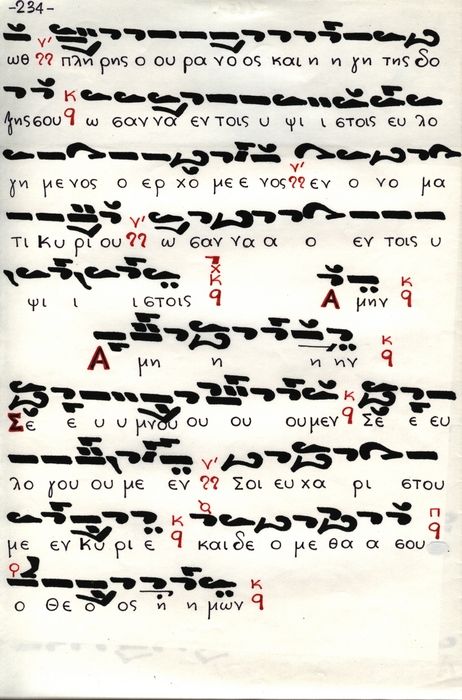 -234-
ωθ πλη ρης ο ου ρα νο ος και η η γη της δο
ξης σου ω σαν να εν τοις υ ψι ι στοις ευ λο
γη με νος ο ερ χο με ε νος εν ο νο μα
τι Κυ ρι ου ω σαν να α ο εν τοις υ
ψι ι ι στοις Α μην
Α μη η η ην
Σε ε υ υ μνου ου ου ουμεν Σε ε ευ
λο γου ου με εν Σοι ευ χα ρι στου
με εν Κυ ρι ε και δε ο με θα α σου
ο Θε ο ος η η μων